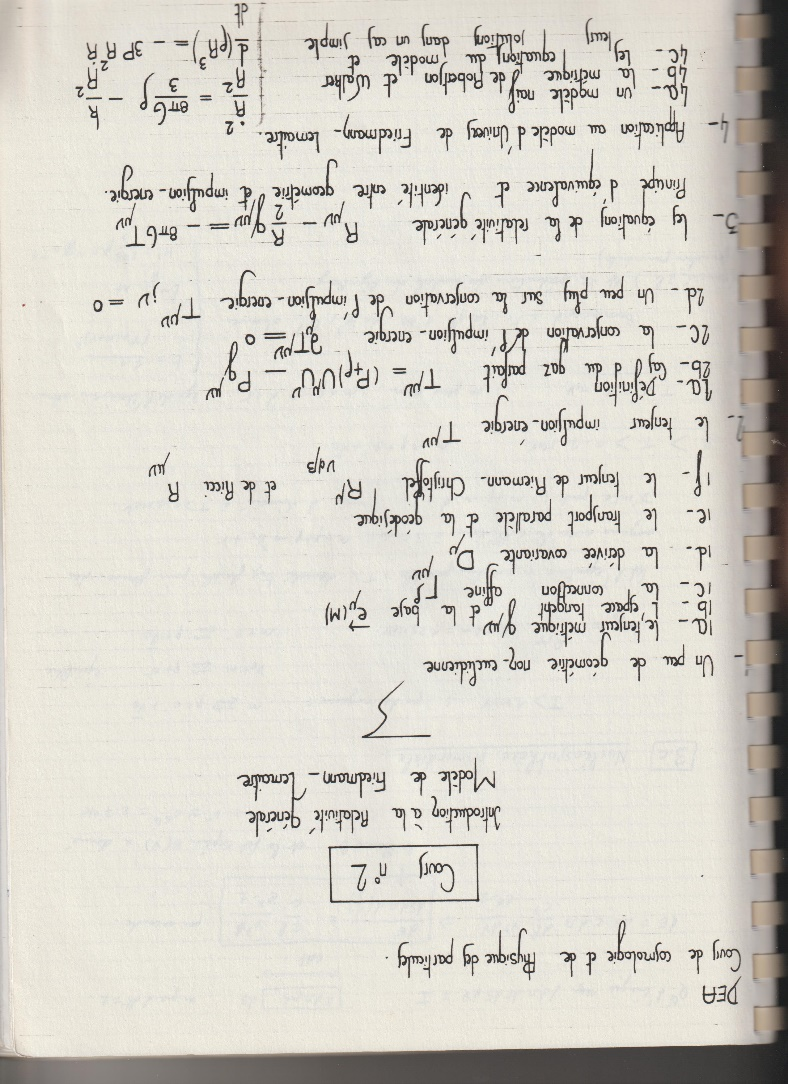 DEA
Cours de cosmologie et de Physique des particules.
Cours n°2
Introduction à la Relativité Générale
Modèle de Friedmann - Lemaitre
1- Un peu de géométrie non-euclidienne
1a- le tenseur métrique gμν
1b- L'espace tangent et la base e⃗μ(M)
1c- la connection affine Γ^ρμν
1d- la dérivée covariante Dμ
1e- le transport parallèle et la géodésique
1f- le tenseur de Riemann-Christoffel R^μναβ et de Ricci Rμν
2- le tenseur impulsion-énergie Tμν
2a- Définition
2b- Cas d'du gaz parfait Tμν = (P+ρ)UμUν - P gμν
2c- la conservation de l'impulsion-energie ∂Tμν = 0
2d- Un peu plus sur la conservation de l'impulsion-energie Tμν;ν = 0
3- les équations de la relativité générale Rμν - R/2 gμν = - 8πG Tμν
Principe d'équivalence et identité entre géométrie et impulsion-energie.
4- Application au modèle d'Univers de Friedmann-Lemaitre.
4a- un modèle naif
4b- la métrique de Robertson et Walker
4c- les equations du modèle et leurs solutions dans un cas simple
Ṙ²/R² = 8πG/3 ρ - k/R²
d/dt (ρR³) = - 3P R²Ṙ